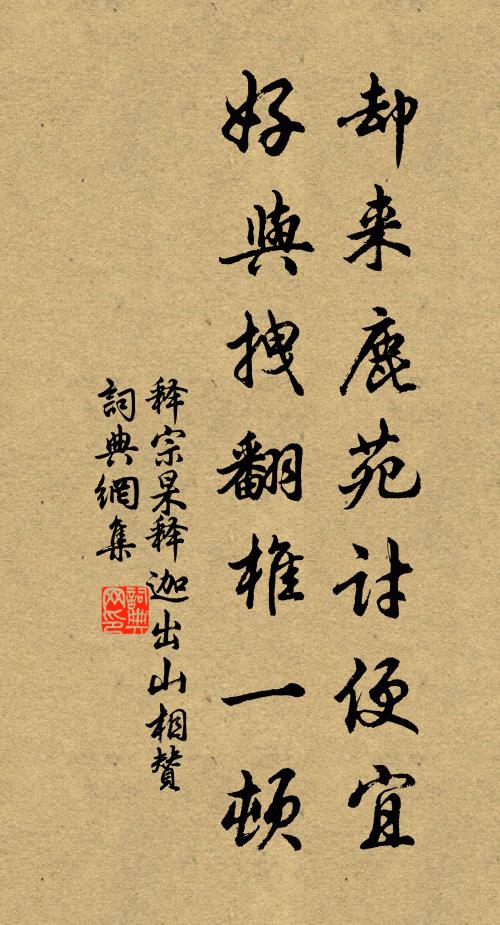 却来鹿苑讨便宜
好與拽翻椎一顿
释宗杲释迦出山相赞
詞典網集
詞典网印